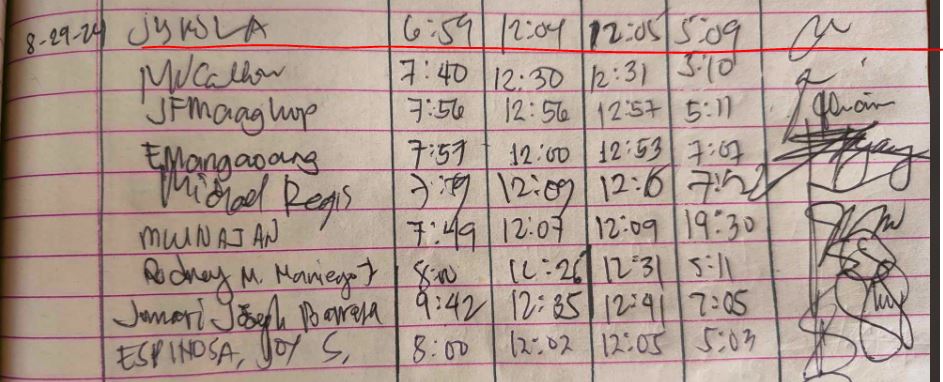 8-29-24 JYKSLA 6:59 12:04 12:05 5:09
7:40 12:30 12:31 5:10
JFMaaghop 7:56 12:56 12:57 5:11
EMangaoang 7:57 12:00 12:53 7:07
Michael Regis 12:09
MWNAJAN 7:49 12:07 12:09 19:30
Rodney M. Maniego 8:00 12:26 12:31 5:11
Joseph 9:42 12:35 12:41 7:05
ESPINOSA, Joy S, 8:00 12:02 12:05 5:03